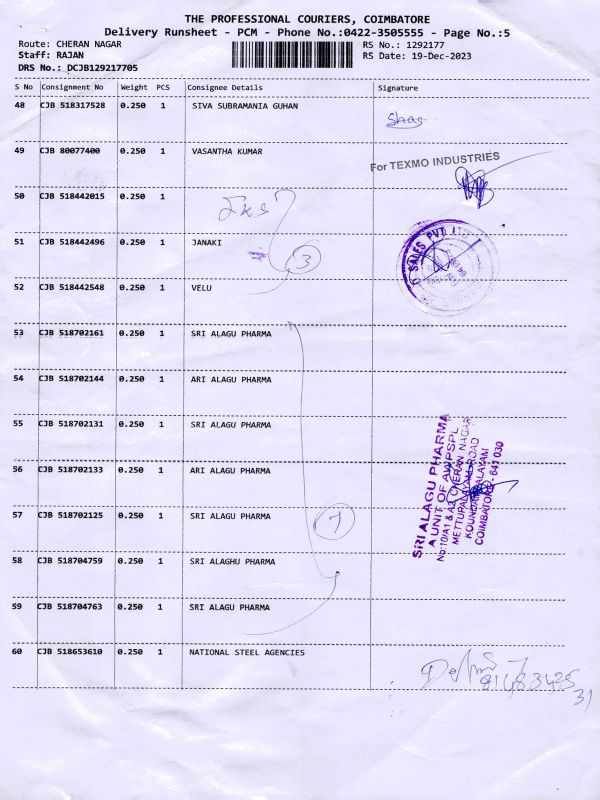 THE PROFESSIONAL COURIERS, COIMBATORE
Delivery Runsheet - PCM - Phone No.:0422-3505555 - Page No.:5
Route: CHERAN NAGAR RS No.: 1292177
Staff: RAJAN RS Date: 19-Dec-2023
DRS No.: DCJB129217705
S No Consignment No Weight PCS Consignee Details Signature
48 CJB 518317528 0.250 1 SIVA SUBRAMANIA GUHAN
49 CJB 80077400 0.250 1 VASANTHA KUMAR
For TEXMO INDUSTRIES
50 CJB 518442015 0.250 1
51 CJB 518442496 0.250 1 JANAKI
SALES PVT
3
52 CJB 518442548 0.250 1 VELU
53 CJB 518702161 0.250 1 SRI ALAGU PHARMA
54 CJB 518702144 0.250 1 ARI ALAGU PHARMA
55 CJB 518702131 0.250 1 SRI ALAGU PHARMA
56 CJB 518702133 0.250 1 ARI ALAGU PHARMA
57 CJB 518702125 0.250 1 SRI ALAGU PHARMA
7
SRI ALAGU PHARMA
A UNIT OF AWPSPL
No:10/A1 & A2, CHERAN NAGAR
METTUPALAYAM ROAD
COIMBATORE - 641 030
58 CJB 518704759 0.250 1 SRI ALAGHU PHARMA
59 CJB 518704763 0.250 1 SRI ALAGU PHARMA
60 CJB 518653610 0.250 1 NATIONAL STEEL AGENCIES